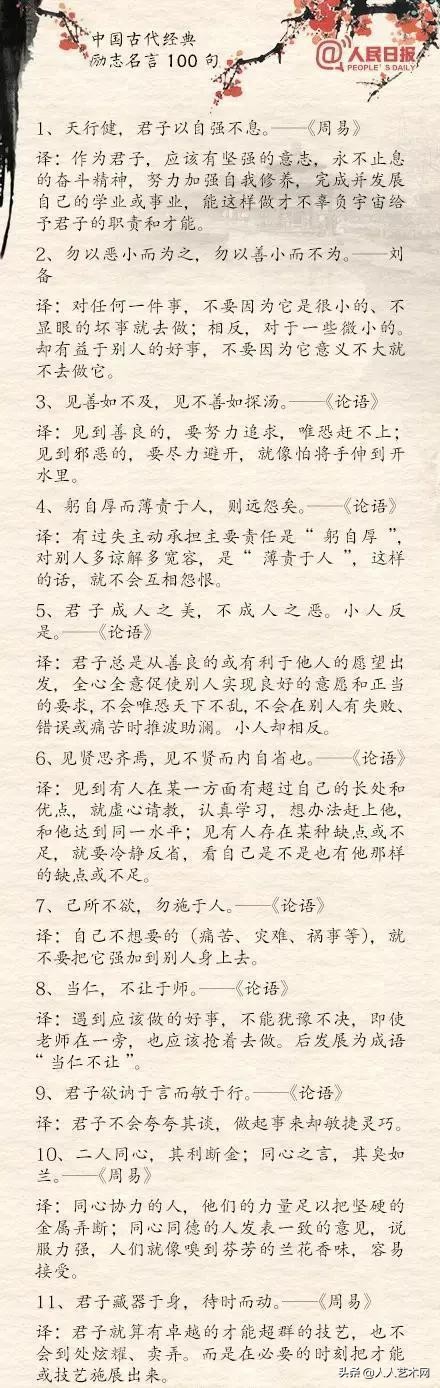 中国古代经典
励志名言100句
@人民日报
PEOPLE'S DAILY
1、天行健，君子以自强不息。——《周易》
译：作为君子，应该有坚强的意志，永不止息
的奋斗精神，努力加强自我修养，完成并发展
自己的学业或事业，能这样做才不辜负宇宙给
予君子的职责和才能。
2、勿以恶小而为之，勿以善小而不为。——刘
备
译：对任何一件事，不要因为它是很小的、不
显眼的坏事就去做；相反，对于一些微小的。
却有益于别人的好事，不要因为它意义不大就
不去做它。
3、见善如不及，见不善如探汤。——《论语》
译：见到善良的，要努力追求，唯恐赶不上；
见到邪恶的，要尽力避开，就像怕将手伸到开
水里。
4、躬自厚而薄责于人，则远怨矣。——《论语》
译：有过失主动承担主要责任是“躬自厚”，
对别人多谅解多宽容，是“薄责于人”，这样
的话，就不会互相怨恨。
5、君子成人之美，不成人之恶。小人反
是。——《论语》
译：君子总是从善良的或有利于他人的愿望出
发，全心全意促使别人实现良好的意愿和正当
的要求，不会唯恐天下不乱，不会在别人有失败、
错误或痛苦时推波助澜。小人却相反。
6、见贤思齐焉，见不贤而内自省也。——《论语》
译：见到有人在某一方面有超过自己的长处和
优点，就虚心请教，认真学习，想办法赶上他，
和他达到同一水平；见有人存在某种缺点或不
足，就要冷静反省，看自己是不是也有他那样
的缺点或不足。
7、己所不欲，勿施于人。——《论语》
译：自己不想要的（痛苦、灾难、祸事等），就
不要把它强加到别人身上去。
8、当仁，不让于师。——《论语》
译：遇到应该做的好事，不能犹豫不决，即使
老师在一旁，也应该抢着去做。后发展为成语
“当仁不让”。
9、君子欲讷于言而敏于行。——《论语》
译：君子不会夸夸其谈，做起事来却敏捷灵巧。
10、二人同心，其利断金；同心之言，其臭如
兰。——《周易》
译：同心协力的人，他们的力量足以把坚硬的
金属弄断；同心同德的人发表一致的意见，说
服力强，人们就像嗅到芬芳的兰花香味，容易
接受。
11、君子藏器于身，待时而动。——《周易》
译：君子就算有卓越的才能超群的技艺，也不
会到处炫耀、卖弄。而是在必要的时刻把才能
或技艺施展出来。
头条@人人艺术网